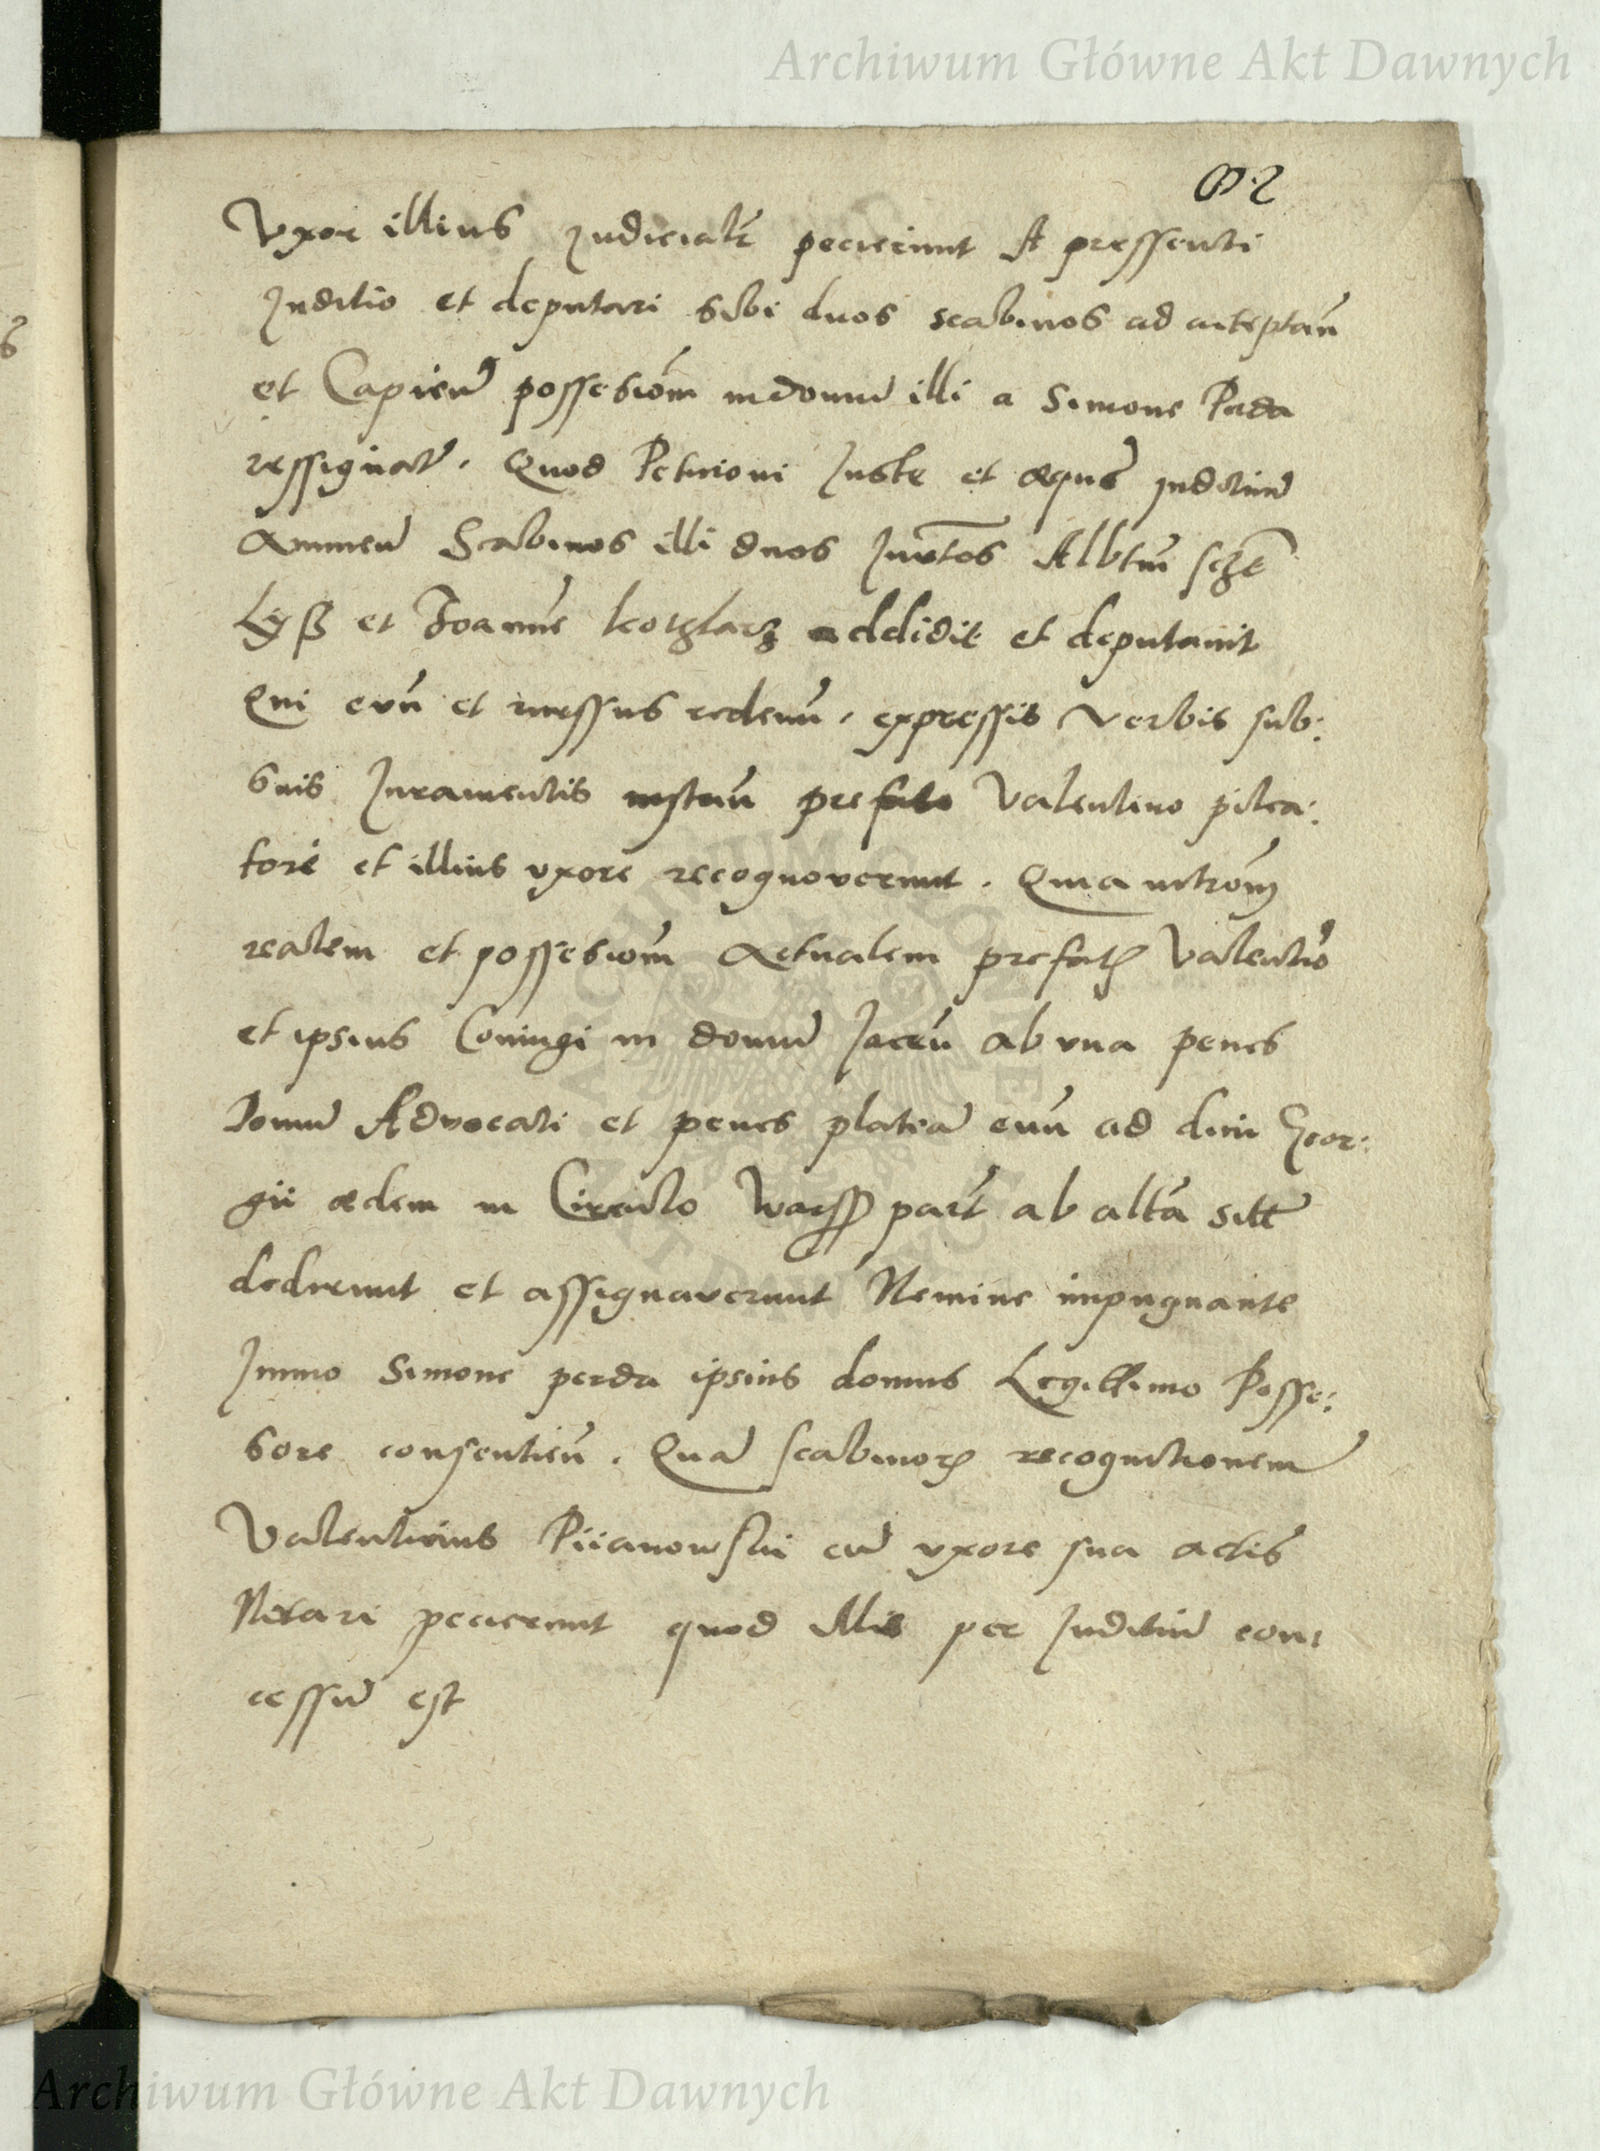 Archiwum Główne Akt Dawnych
Vxor illius Judicialr pecierunt A pressenti
Juditio et deputari sibi duos scabinos ad acceptan
et Capien possesiom in domum illi a Simone Perda
ressignat. Quod Peticioni Juste et æque Juditium
Annuen Scabinos illi duos Jurtos Albtum
Lyß et Joanne kotzlarz addidit et deputauit
Qui eun et rurssus redeun, expressis verbis sub:
suis Juramentis instan prefato Valentino pilea:
tore et illius vxore recognoverunt. Quia introm
realem et possesiom Actualem prefat Valentio
et ipsius Coniugi in domum Jacen ab una penes
Domum Advocati et penes plateam eun ad diui Geor:
gii ædem in Circulo Warss part ab altera sitt
dedrerunt et assignaverunt Nemine impugnante
Jmmo Simone perda ipsius domus Legittimo Posse:
sore consentien. Quam scabinor recognitionem
Valentinus Piianowski cum vxore sua actis
Notari pecierunt quod illis per Juditium con:
cessum est
Archiwum Główne Akt Dawnych